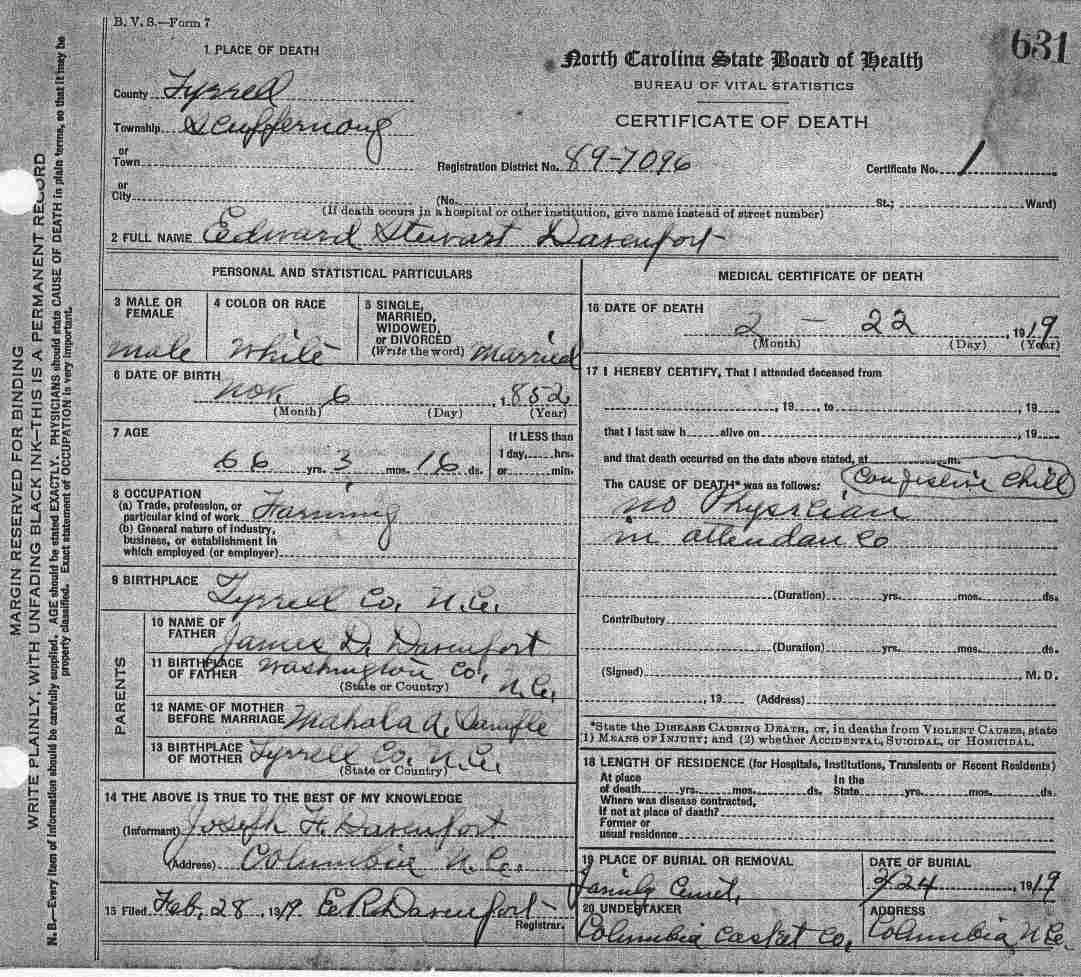 B. V. S.—Form 7
631
1 PLACE OF DEATH
North Carolina State Board of Health
BUREAU OF VITAL STATISTICS
CERTIFICATE OF DEATH
County Tyrrell
Township Scuppernong
or
Town
Registration District No. 89-7096
Certificate No. 1
or
City
(No. St.; Ward)
(If death occurs in a hospital or other institution, give name instead of street number)
2 FULL NAME Edward Stewart Davenport
PERSONAL AND STATISTICAL PARTICULARS
3 MALE OR FEMALE
male
4 COLOR OR RACE
White
5 SINGLE,
MARRIED,
WIDOWED,
or DIVORCED
(Write the word) Married
6 DATE OF BIRTH
Nov. 6, 1852
(Month) (Day) (Year)
7 AGE
66 yrs. 3 mos. 16 ds.
If LESS than
1 day, hrs.
or min.
8 OCCUPATION
(a) Trade, profession, or
particular kind of work Farming
(b) General nature of industry,
business, or establishment in
which employed (or employer)
9 BIRTHPLACE
Tyrrell Co. N.C.
PARENTS
10 NAME OF
FATHER James D. Davenport
11 BIRTHPLACE
OF FATHER Washington Co, N.C.
(State or Country)
12 NAME OF MOTHER
BEFORE MARRIAGE Mahala A.
13 BIRTHPLACE
OF MOTHER Tyrrell Co. N.C.
(State or Country)
14 THE ABOVE IS TRUE TO THE BEST OF MY KNOWLEDGE
(Informant) Joseph H. Davenport
(Address) Columbia N.C.
15 Filed Feb, 28, 1919 E.R. Davenport
Registrar.
MEDICAL CERTIFICATE OF DEATH
16 DATE OF DEATH
2 – 22, 1919
(Month) (Day) (Year)
17 I HEREBY CERTIFY, That I attended deceased from
, 19 , to , 19
that I last saw h alive on , 19
and that death occurred on the date above stated, at m.
The CAUSE OF DEATH* was as follows: Conjestive Chill
no Physician
in attendance
(Duration) yrs. mos. ds.
Contributory
(Duration) yrs. mos. ds.
(Signed) M. D.
, 19 (Address)
*State the DISEASE CAUSING DEATH, or, in deaths from VIOLENT CAUSES, state
1) MEANS OF INJURY; and (2) whether ACCIDENTAL, SUICIDAL, or HOMICIDAL.
18 LENGTH OF RESIDENCE (for Hospitals, Institutions, Transients or Recent Residents)
At place In the
of death yrs. mos. ds. State yrs. mos. ds.
Where was disease contracted,
If not at place of death?
Former or
usual residence
19 PLACE OF BURIAL OR REMOVAL
Family Cemet.
DATE OF BURIAL
2 24, 1919
20 UNDERTAKER
Columbia Casket Co.
ADDRESS
Columbia N.C.
MARGIN RESERVED FOR BINDING
WRITE PLAINLY, WITH UNFADING BLACK INK—THIS IS A PERMANENT RECORD
N. B.—Every item of information should be carefully supplied. AGE should be stated EXACTLY. PHYSICIANS should state CAUSE OF DEATH in plain terms, so that it may be
properly classified. Exact statement of OCCUPATION is very important.